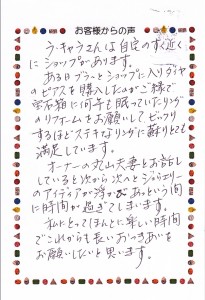 お客様からの声
ラ・キャラさんは自宅の家近く
にショップがあります。
ある日ブラ〜とショップに入りダイヤ
のピアスを購入したのがご縁で
宝石箱に何年も眠っていたリング
のリフォームをお願いして、ビックリ
するほどステキなリングに蘇りとても
満足しています。
オーナーの丸山夫妻とお話し
していると次から次へとジュエリー
のアイディアが浮かびあっという間
に時間が過ぎてしまいます。
私にとってほんとに楽しい時間
でこれからも長いおつきあいを
お願いしたいと思います。